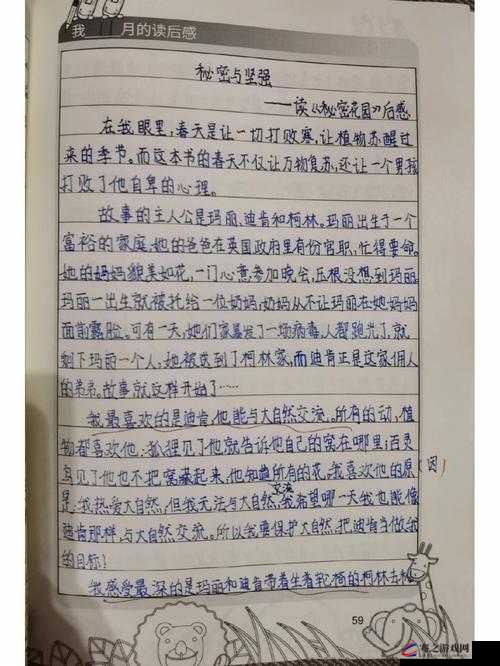 我 月的读后感
秘密与坚强
——读《秘密花园》后感
在我眼里，春天是让一切打败寒，让植物苏醒过
来的季节。而这本书的春天不仅让万物复苏，还让一个男孩
打败了他自卑的心理。
故事的主人公是玛丽、迪肯和柯林。玛丽出生于一个
富裕的家庭，她的爸爸在英国政府里有份官职，忙得要命。
她的妈妈貌美如花，一门心意参加晚会，压根没想到玛丽。
玛丽一出生就被托给一位奶妈；奶妈从不让玛丽在她妈妈
面前露脸。可有一天，她们家暴发了一场病毒，人都跑光了，就
剩下玛丽一个人；她被送到了柯林家，而迪肯正是这家佣人
的弟弟。故事就这样开始了……
我最喜欢的是迪肯，他能与大自然交流。所有的动，植
物都喜欢他：狐狸见了他就告诉他自己的窝在哪里；百灵
鸟见了他也不把窝藏起来，他知道所有的花。我喜欢他的原（因）
是：我热爱大自然，但我无法与大自然交流，我希望哪一天我也能像
迪肯那样，与大自然交流。所以我要保护大自然，把迪肯当做我
的目标！
我感受最深的是玛丽和迪肯带着坐着轮椅的柯林去秘
59
游戏网